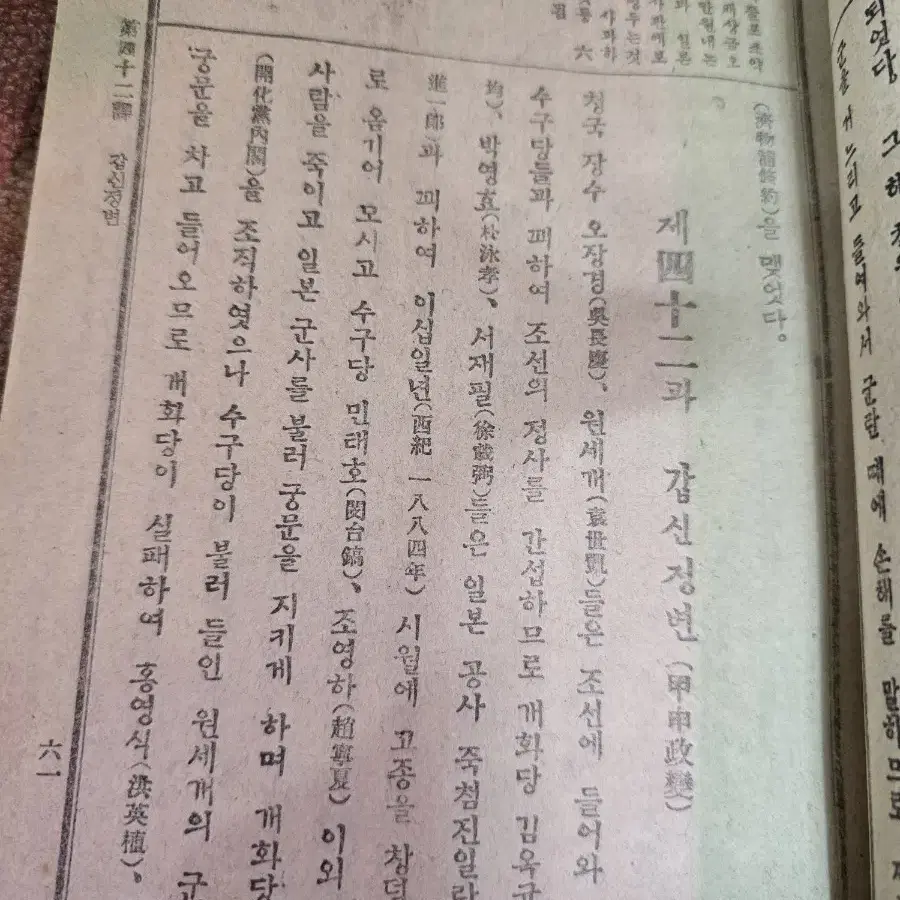 군란 때에 손해를 말하므로
배상금오
만원내는
일본
병두는것
사과하
六
(濟物浦條約)을 맺엇다。
제四十二과 갑신정변(甲申政變)
청국 장수 오장경(吳長慶)、원세개(袁世凱)들은 조선에 들어와
수구당들과 꾀하여 조선의 정사를 간섭하므로 개화당 김옥균
均)、박영효(朴泳孝)、서재필(徐載弼)들은 일본 공사 죽첨진일랑
進一郞)과 꾀하여 이십일년(西紀 一八八四年)시월에 고종을 창덕
로 옴기어 모시고 수구당 민태호(閔台鎬)、조영하(趙寧夏)이외
사람을 죽이고 일본 군사를 불러 궁문을 지키게 하며 개화당
(開化黨內閣)을 조직하엿으나 수구당이 불러 들인 원세개의 군
궁문을 차고 들어오므로 개화당이 실패하여 홍영식(洪英植)、
第四十二課 갑신정변
六一